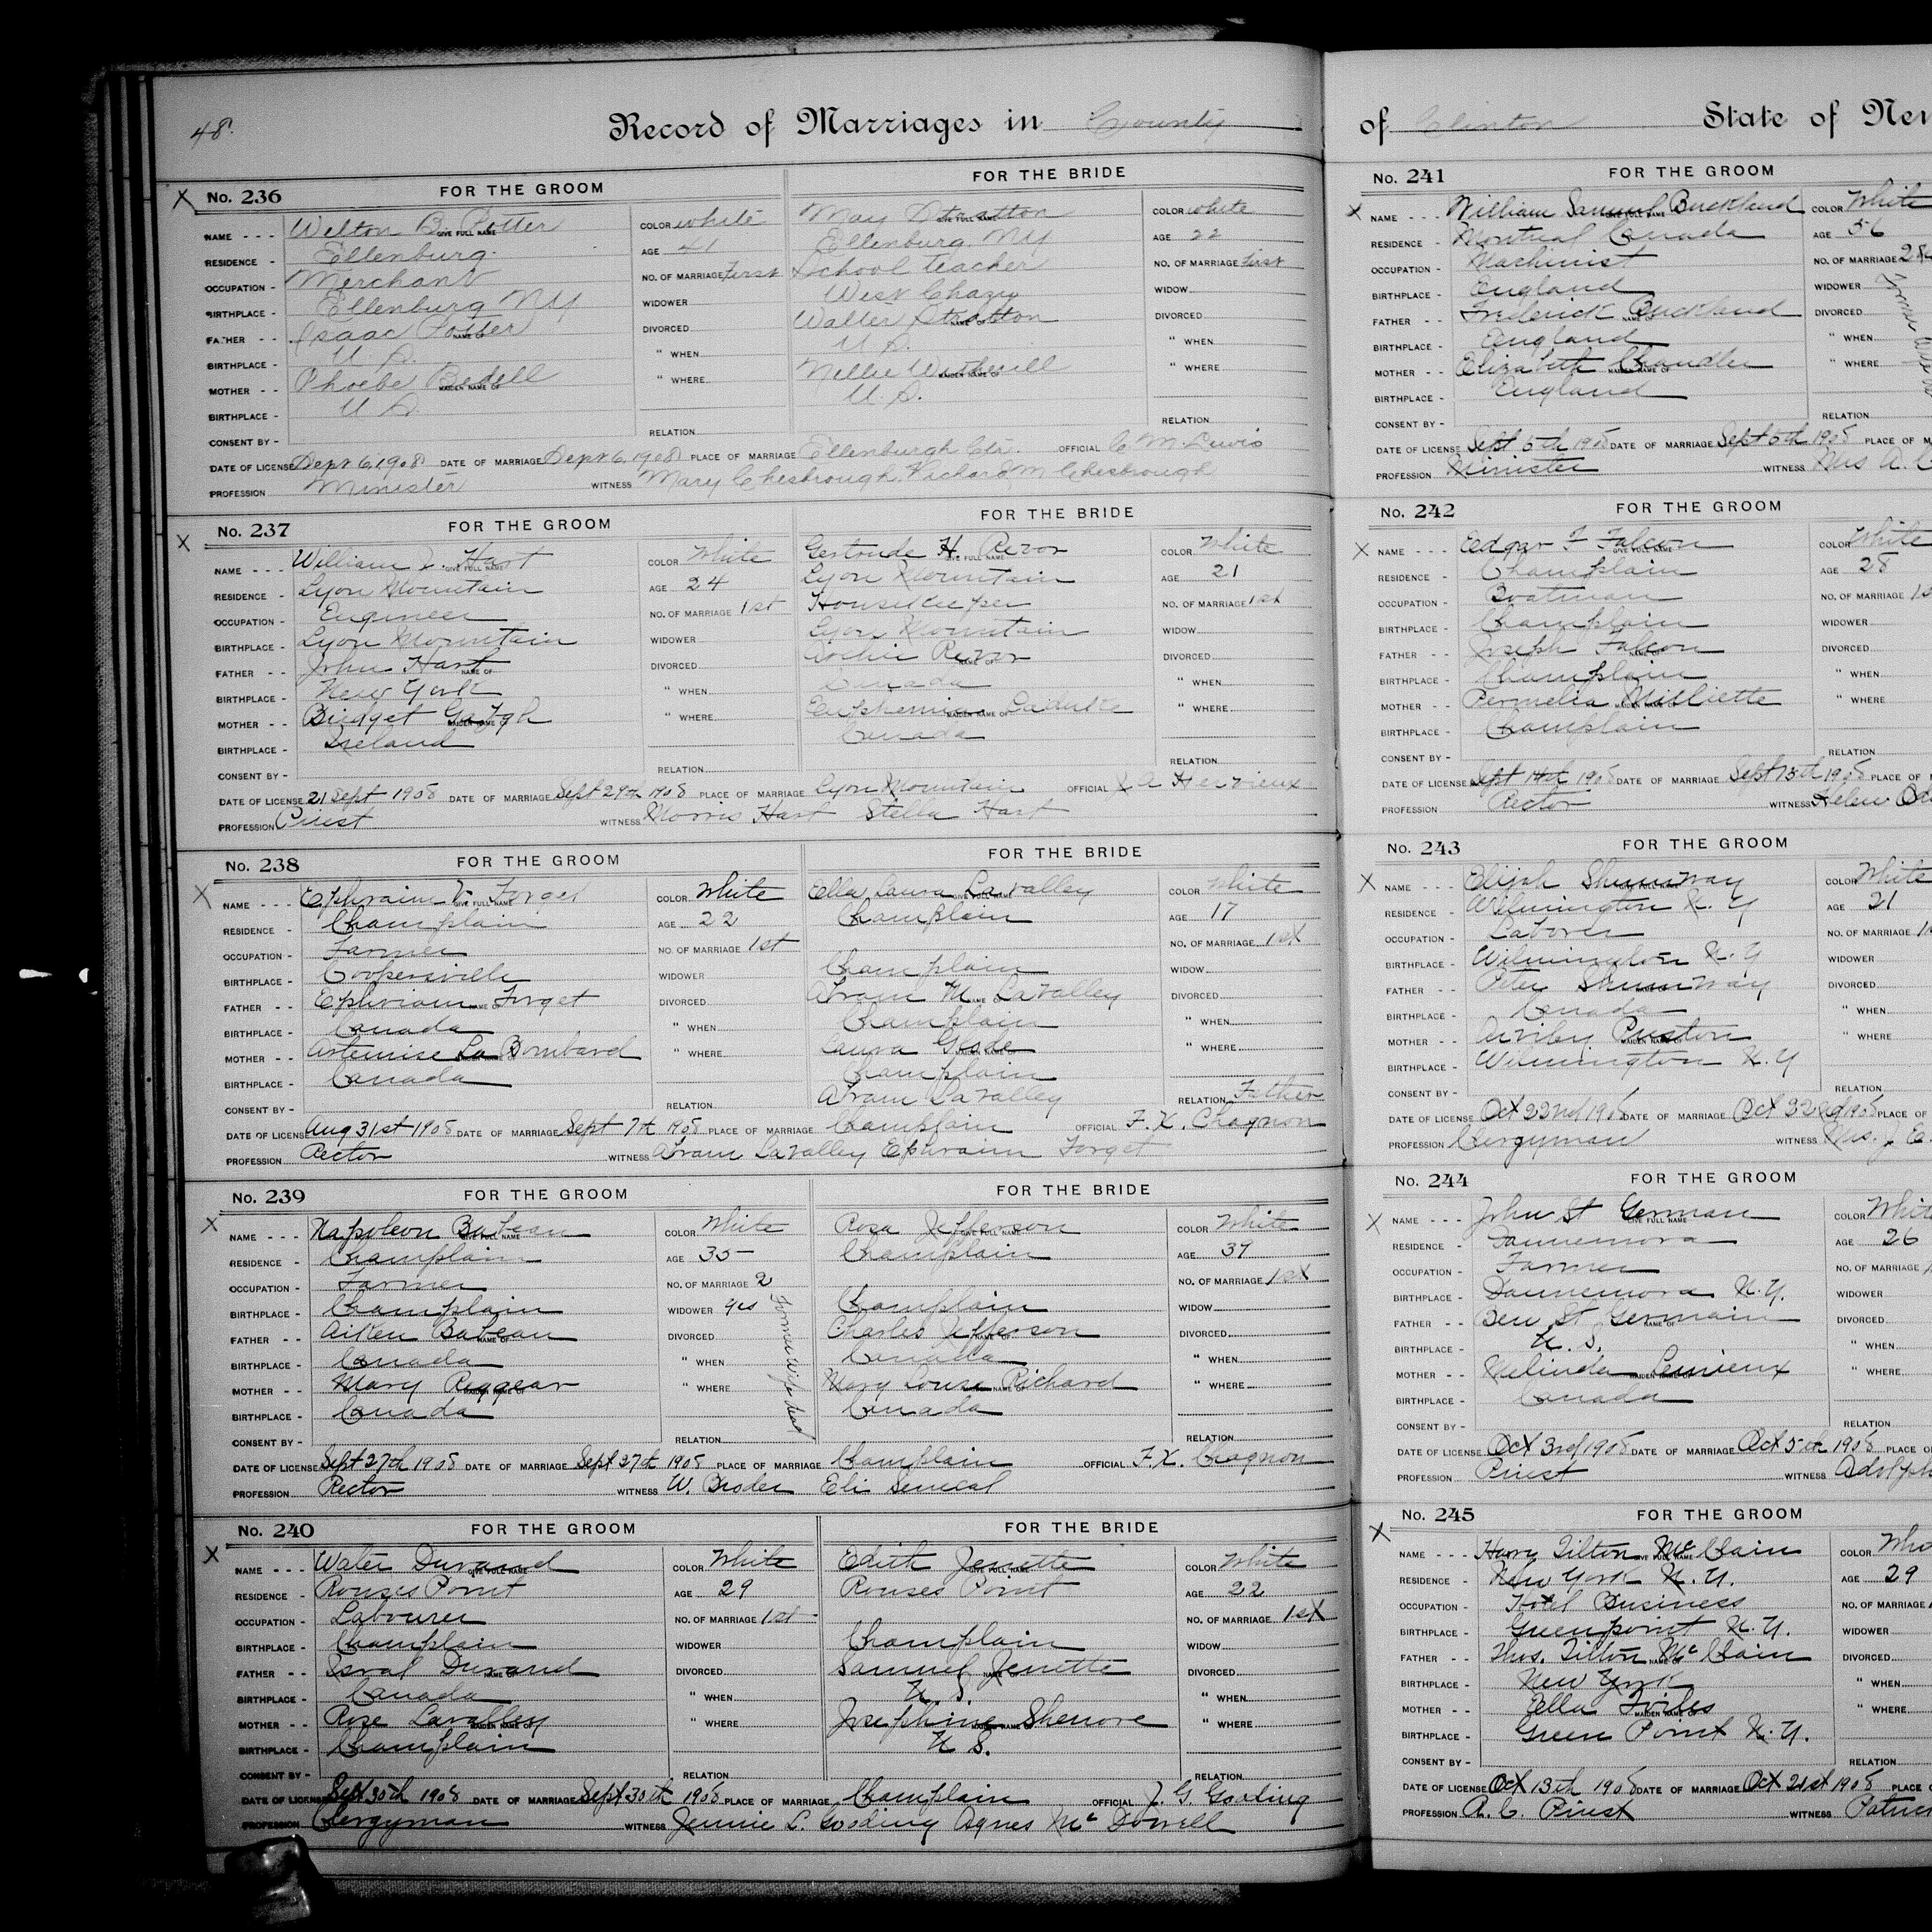 48.
Record of Marriages in County
No. 236 FOR THE GROOM FOR THE BRIDE
NAME - - - Welton B. Potter GIVE FULL NAME COLOR white May Stratton GIVE FULL NAME COLOR white
RESIDENCE - Ellenburg. AGE 41 Ellenburg NY AGE 22
OCCUPATION - Merchant NO. OF MARRIAGE first School teacher NO. OF MARRIAGE first
BIRTHPLACE - Ellenburg NY WIDOWER West Chazy WIDOW
FATHER - - Isaac Potter NAME OF DIVORCED Walter Stratton NAME OF DIVORCED
BIRTHPLACE - U.S. " WHEN U.S. " WHEN
MOTHER - - Phoebe Bedell MAIDEN NAME OF " WHERE Nellie Witherill MAIDEN NAME OF " WHERE
BIRTHPLACE - U.S. U.S.
CONSENT BY - RELATION RELATION
DATE OF LICENSE Sept 6, 1908 DATE OF MARRIAGE Sept 6, 1908 PLACE OF MARRIAGE Ellenburgh Ctr. OFFICIAL C M Lewis
PROFESSION Minister WITNESS Mary Chesbrough, Richard M Chesbrough
No. 237 FOR THE GROOM FOR THE BRIDE
NAME - - - William Hart GIVE FULL NAME COLOR White Gertrude H. Rezor GIVE FULL NAME COLOR White
RESIDENCE - Lyon Mountain AGE 24 Lyon Mountain AGE 21
OCCUPATION - Engineer NO. OF MARRIAGE 1st Housekeeper NO. OF MARRIAGE 1st
BIRTHPLACE - Lyon Mountain WIDOWER Lyon Mountain WIDOW
FATHER - - John Hart NAME OF DIVORCED Rezor NAME OF DIVORCED
BIRTHPLACE - New York " WHEN Canada " WHEN
MOTHER - - Bridget MAIDEN NAME OF " WHERE Euphemia MAIDEN NAME OF " WHERE
BIRTHPLACE - Ireland Canada
CONSENT BY - RELATION RELATION
DATE OF LICENSE 21 Sept 1908 DATE OF MARRIAGE Sept 29th 1908 PLACE OF MARRIAGE Lyon Mountain OFFICIAL A Hervieux
PROFESSION Priest WITNESS Morris Hart Stella Hart
No. 238 FOR THE GROOM FOR THE BRIDE
NAME - - - Ephraim Forget GIVE FULL NAME COLOR White Ella Laura Lavalley GIVE FULL NAME COLOR White
RESIDENCE - Champlain AGE 22 Champlain AGE 17
OCCUPATION - Farmer NO. OF MARRIAGE 1st NO. OF MARRIAGE 1st
BIRTHPLACE - Coopersville WIDOWER Champlain WIDOW
FATHER - - Ephriam Forget NAME OF DIVORCED Abram M Lavalley NAME OF DIVORCED
BIRTHPLACE - Canada " WHEN Champlain " WHEN
MOTHER - - Artemise La Bombard MAIDEN NAME OF " WHERE Laura MAIDEN NAME OF " WHERE
BIRTHPLACE - Canada Champlain
CONSENT BY - RELATION Abram Lavalley RELATION Father
DATE OF LICENSE Aug 31st 1908 DATE OF MARRIAGE Sept 7th 1908 PLACE OF MARRIAGE Champlain OFFICIAL F. X. Chagnon
PROFESSION Rector WITNESS Abram Lavalley Ephraim Forget
No. 239 FOR THE GROOM FOR THE BRIDE
NAME - - - Napoleon Babeau GIVE FULL NAME COLOR White Rosa Jefferson GIVE FULL NAME COLOR White
RESIDENCE - Champlain AGE 35 Champlain AGE 37
OCCUPATION - Farmer NO. OF MARRIAGE 2 NO. OF MARRIAGE 1st
BIRTHPLACE - Champlain WIDOWER yes Champlain WIDOW
Former Wife dead
FATHER - - Aiken Babeau NAME OF DIVORCED Charles Jefferson NAME OF DIVORCED
BIRTHPLACE - Canada " WHEN Canada " WHEN
MOTHER - - Mary MAIDEN NAME OF " WHERE Mary Louise Richard MAIDEN NAME OF " WHERE
BIRTHPLACE - Canada Canada
CONSENT BY - RELATION RELATION
DATE OF LICENSE Sept 27th 1908 DATE OF MARRIAGE Sept 27th 1908 PLACE OF MARRIAGE Champlain OFFICIAL F. X. Chagnon
PROFESSION Rector WITNESS W. Broder Eli Senecal
No. 240 FOR THE GROOM FOR THE BRIDE
NAME - - - Water Durand GIVE FULL NAME COLOR White Edith Jenette GIVE FULL NAME COLOR White
RESIDENCE - Rouses Point AGE 29 Rouses Point AGE 22
OCCUPATION - Labourer NO. OF MARRIAGE 1st NO. OF MARRIAGE 1st
BIRTHPLACE - Champlain WIDOWER Champlain WIDOW
FATHER - - Isral Durand NAME OF DIVORCED Samuel Jenette NAME OF DIVORCED
BIRTHPLACE - Canada " WHEN U. S. " WHEN
MOTHER - - Rose Lavalley MAIDEN NAME OF " WHERE Josephine Shenore MAIDEN NAME OF " WHERE
BIRTHPLACE - Champlain U S.
CONSENT BY - RELATION RELATION
DATE OF LICENSE Sept 30th 1908 DATE OF MARRIAGE Sept 30th 1908 PLACE OF MARRIAGE Champlain OFFICIAL J. G. Gooding
PROFESSION Clergyman WITNESS Jennie L. Gooding Agnes Mc Dowell
of Clinton State of New
No. 241 FOR THE GROOM
NAME - - - William Samuel Buckland GIVE FULL NAME COLOR White
RESIDENCE - Montreal Canada AGE 56
OCCUPATION - Machinist NO. OF MARRIAGE 2
BIRTHPLACE - England WIDOWER
FATHER - - Frederick Buckland NAME OF DIVORCED
BIRTHPLACE - England " WHEN
MOTHER - - Elizabeth Chandler MAIDEN NAME OF " WHERE
BIRTHPLACE - England
CONSENT BY - RELATION
DATE OF LICENSE Sept 5th 1908 DATE OF MARRIAGE Sept 5th 1908 PLACE OF M
PROFESSION Minister WITNESS Mrs A.
No. 242 FOR THE GROOM
NAME - - - Edgar F Falcon GIVE FULL NAME COLOR White
RESIDENCE - Champlain AGE 28
OCCUPATION - Boatman NO. OF MARRIAGE 1s
BIRTHPLACE - Champlain WIDOWER
FATHER - - Joseph Falcon NAME OF DIVORCED
BIRTHPLACE - Champlain " WHEN
MOTHER - - Permelia Milliette MAIDEN NAME OF " WHERE
BIRTHPLACE - Champlain
CONSENT BY - RELATION
DATE OF LICENSE Sept 14th 1908 DATE OF MARRIAGE Sept 15th 1908 PLACE OF
PROFESSION Rector WITNESS Helen
No. 243 FOR THE GROOM
NAME - - - Elijah Shumway GIVE FULL NAME COLOR White
RESIDENCE - Wilmington N. Y AGE 21
OCCUPATION - Laborer NO. OF MARRIAGE
BIRTHPLACE - Wilmington N. Y WIDOWER
FATHER - - Peter Shumway NAME OF DIVORCED
BIRTHPLACE - Canada " WHEN
MOTHER - - Preston MAIDEN NAME OF " WHERE
BIRTHPLACE - Wilmington N. Y
CONSENT BY - RELATION
DATE OF LICENSE Oct 22nd 1908 DATE OF MARRIAGE Oct 1908 PLACE OF
PROFESSION Clergyman WITNESS Mrs. J. E.
No. 244 FOR THE GROOM
NAME - - - John St German GIVE FULL NAME COLOR Whit
RESIDENCE - Dannemora AGE 26
OCCUPATION - Farmer NO. OF MARRIAGE
BIRTHPLACE - Dannemora N.Y. WIDOWER
FATHER - - Ben St Germain NAME OF DIVORCED
BIRTHPLACE - U. S. " WHEN
MOTHER - - Melinda Lemieux MAIDEN NAME OF " WHERE
BIRTHPLACE - Canada
CONSENT BY - RELATION
DATE OF LICENSE Oct 3rd 1908 DATE OF MARRIAGE Oct 5th 1908 PLACE O
PROFESSION Priest WITNESS Adolph
No. 245 FOR THE GROOM
NAME - - - Harry Tilton McClain GIVE FULL NAME COLOR Whi
RESIDENCE - New York N. Y. AGE 29
OCCUPATION - Hotel Business NO. OF MARRIAGE
BIRTHPLACE - Greenpoint N. Y. WIDOWER
FATHER - - Thos. Tilton McClain NAME OF DIVORCED
BIRTHPLACE - New York " WHEN
MOTHER - - Ella Forbes MAIDEN NAME OF " WHERE
BIRTHPLACE - Green Point N. Y.
CONSENT BY - RELATION
DATE OF LICENSE Oct 13th 1908 DATE OF MARRIAGE Oct 21st 1908 PLACE O
PROFESSION R. C. Priest WITNESS Patric